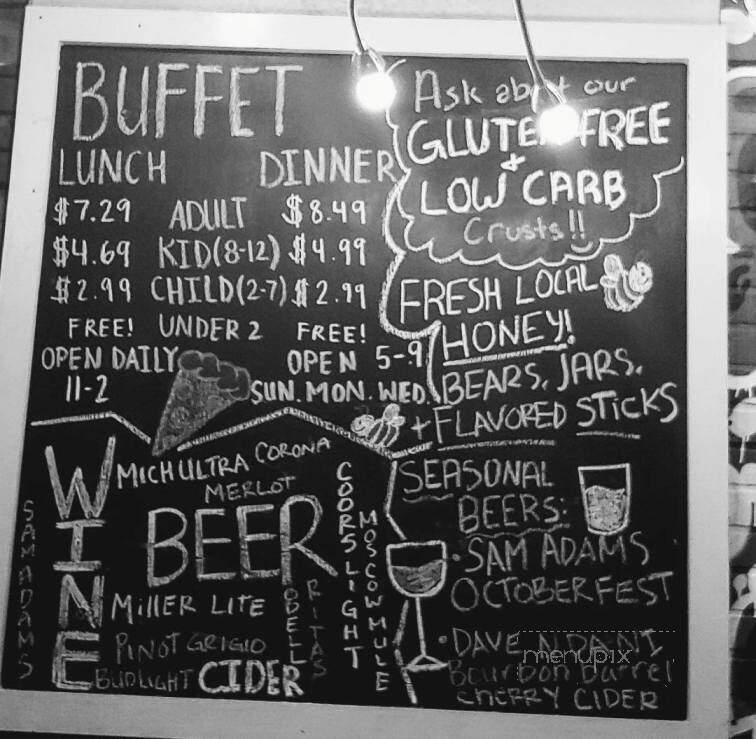 BUFFET
LUNCH DINNER
$7.29 ADULT $8.49
$4.69 KID(8-12) $4.99
$2.99 CHILD(2-7) $2.99
FREE! UNDER 2 FREE!
OPEN DAILY OPEN 5-9
11-2 SUN. MON. WED.
Ask about our
GLUTEN FREE
+
LOW CARB
Crusts!!
FRESH LOCAL
HONEY!
BEARS, JARS,
+ FLAVORED STICKS
SAM ADAMS
WINE
MICH ULTRA CORONA
MERLOT
BEER
MILLER LITE
PINOT GRIGIO
BUD LIGHT CIDER
ODELL
RITAS
COORS LIGHT
MOSCOW MULE
SEASONAL
BEERS:
• SAM ADAMS
OCTOBERFEST
• DAVE N DANI
Bourbon Barrel
CHERRY CIDER
menupix